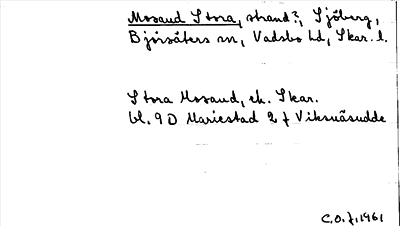 Mosaud Stora, strand?, Sjöberg,
Björsäters sn, Vadsbo hd, Skar. l.
Stora Mosaud, ek. Skar.
bl. 9 D Mariestad 2 f Viksnäsudde
C.O.f. 1961